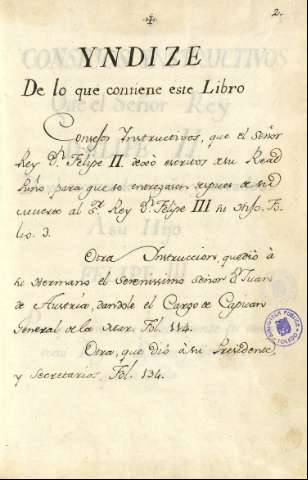 2.
YNDIZE
De lo que contiene este Libro
Consejos Instructivos, que el Señor
Rey Dn. Felipe II. dexó escritos de su Real
Puño para que se entregasen despues de su
muerte al Sr. Rey Dn. Felipe III su Hijo. Fo-
lio. 3.
Otra Instruccion, que dió à
su Hermano el Serenissimo Señor Dn. Juan
de Austria, dandole el Cargo de Capitan
General de la Mar. Fol. 114.
Otra, que dió à su Presidente,
y Secretarios, Fol. 134.
BIBLIOTECA PUBLICA
TOLEDO